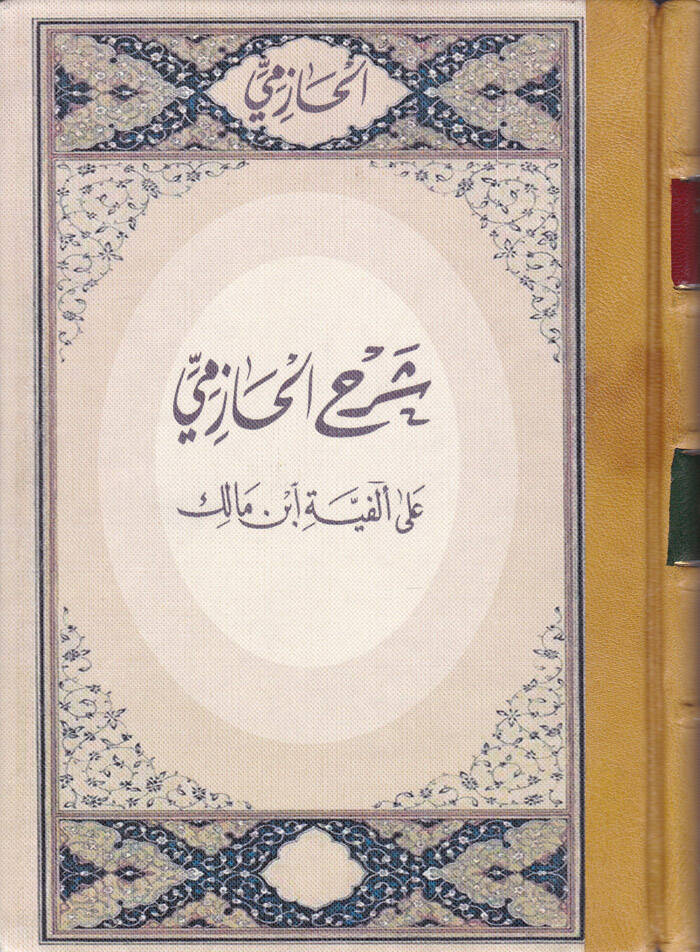 الحَازِميّ
شَرْح الْحَازِميّ
عَلى ألفيَّةِ ابْن مَالِك